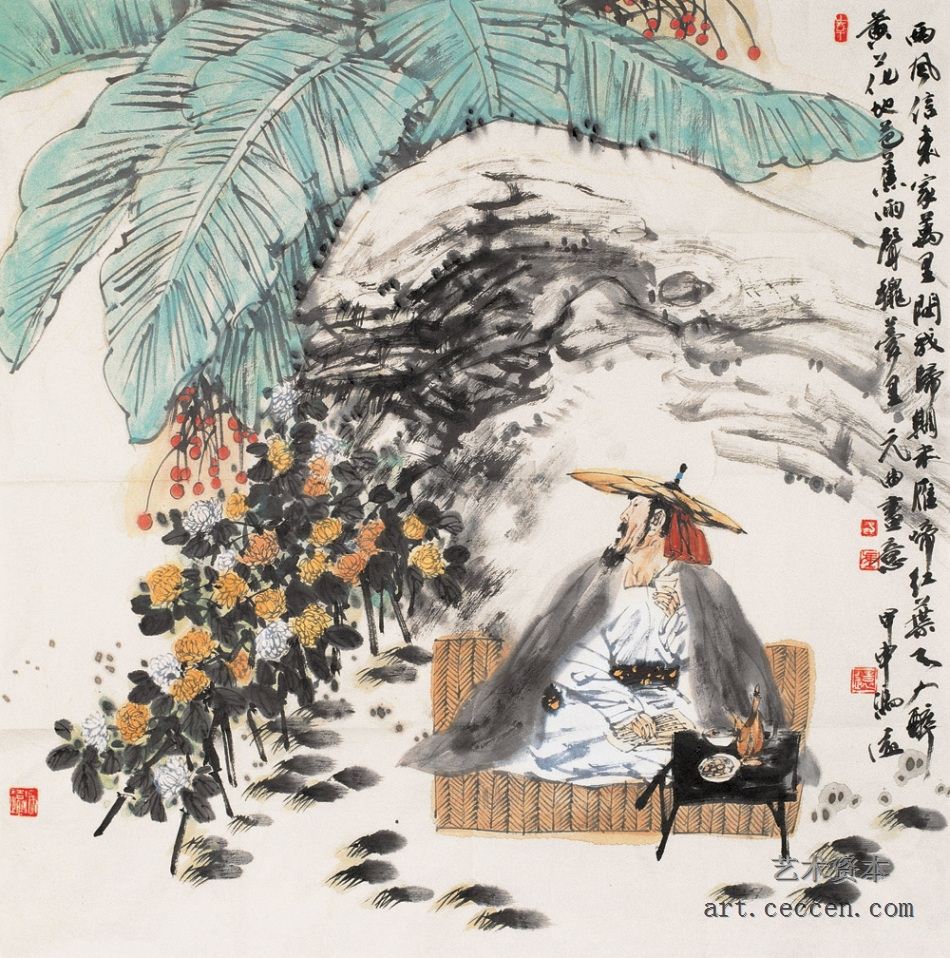 西風信來家萬里問我歸期未雁啼紅葉天人醉
黃花地芭蕉雨聲龝夢里 元曲畫意
甲申
艺术资本
art.ceccen.com